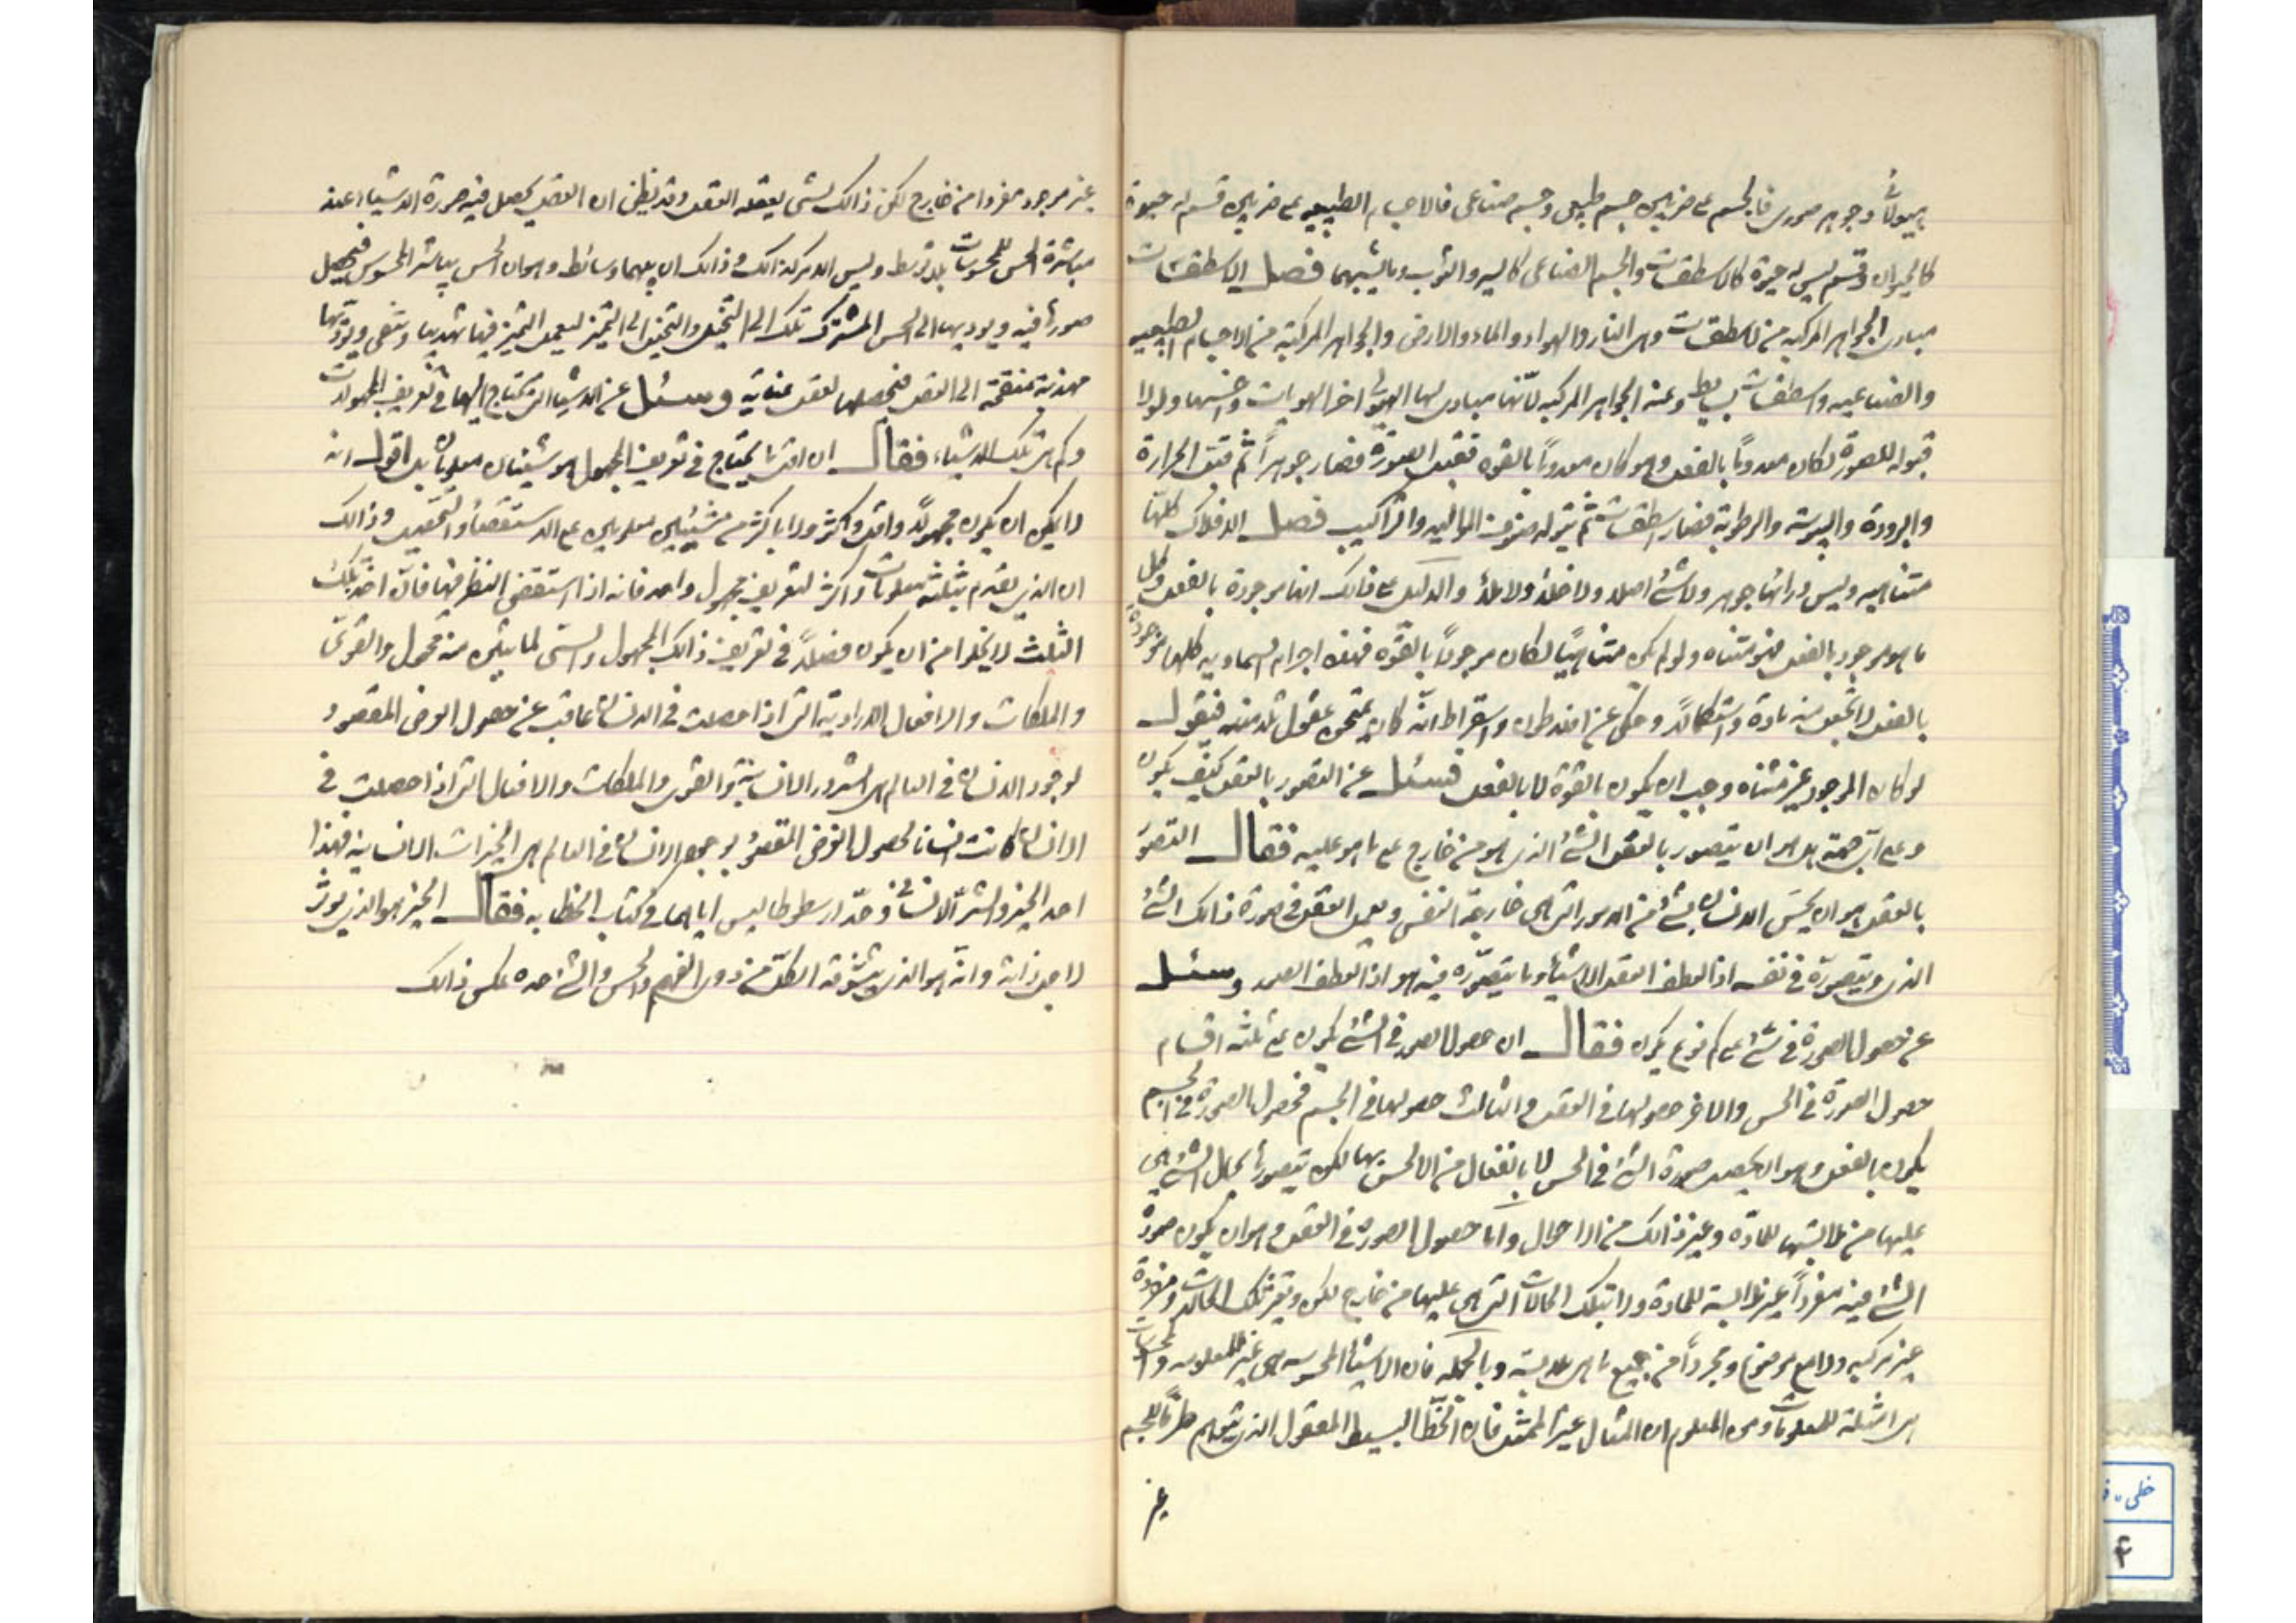 هيولانى وجوهر صورى فالجسم على ضربين جسم طبيعى وجسم صناعى فالاجسام الطبيعيه على ضربين قسم له حيوة
كالحيوان وقسم ليس له حيوة كالاسطقسات والجسم الصناعى كالسرير والثوب وما يشبههما فصل الاسطقسات
مبادى الجواهر المركبه من الاسطقسات وهى النار والهواء والماء والارض والجواهر المركبة من الاجسام الطبيعيه
والصناعيه واسطقسات بسايط وعنه الجواهر المركبه لانها مبادى لها الهيولى اخر الهويات واخسها ولولا
قبوله للصورة لكان معدوماً بالفعل وهو كان معدوماً بالقوه فقبل الصورة فصار جوهراً ثم قبل الحرارة
والبرودة واليبوسة والرطوبة فصار اسطقسات ثم يتولد صنوف المواليد والتراكيب فصل الافلاك كلها
متناهيه وليس ورائها جوهر ولا شئ اصلا ولا خلأ ولا ملأ والدليل على ذالك انها موجودة بالفعل وكل
ما هو موجود بالفعل فهو متناه ولو لم يكن متناهياً لكان موجوداً بالقوه فهذه اجرام السماويه كلها موجودة
بالفعل لا تحتمل زيادة واستكمالاً وحكى عن افلاطون وسقراط انه كان يمتحن عقول تلامذته فيقول
لو كان الموجود غير متناه وجب ان يكون بالقوة لا بالفعل فسئل عن التصور بالعقل كيف يكون
وعلى اى جهة هل هو ان يتصور بالعقل الشئ الذى هو من خارج على ما هو عليه فقال التصور
بالعقل هو ان يحس الانسان بشئ من الامور التى هى خارجة النفس ويعمل العقل فى صورة ذالك الشئ
الذى ويتصوره فى نفسه اذ العقل الطف الاشياء وما يتصوره فيه هو اذا الطف الصور وسئل
عن حصول الصورة فى شئ على كم نوع يكون فقال ان حصول الصور فى الشئ يكون على ثلثه اقسام
حصول الصورة فى الحس والاخر حصولها فى العقل والثالث حصولها فى الجسم فحصول الصورة فى الجسم
يكون بالفعل وهو ان يحصل صورة الشئ فى الحس لا بانفعال من الحس بها لكن يتصورها بحال الشئ هى
عليها من ملابستها للمادة وغير ذالك من الاحوال واما حصول الصورة فى العقل فهو ان يكون صورة
الشئ فيه مفرداً غير ملابسة للمادة ولا بتلك الحالات التى هى عليها من خارج لكن وبغير تلك الحالات ومفردة
غير مركبه ولا مع موضوع ومجرداً من جميع ما هى ملابسة وبالجمله فان الاشياء المحسوسه هى غير المعلومه والمحسوسات
هى امثلة للمعلومات ومن المعلوم ان المثال غير الممثل فان الخط البسيط المعقول الذى يتوهم طرفا للجسم
غير
غير موجود مفردا من خارج لكن ذالك لشئ يعقله العقل وقد يظن ان العقل يحصل فيه صورة الاشياء عند
مباشرة الحس للمحسوسات بلا توسط وليس الامر كذالك وذالك ان بينهما وسائط وهو ان الحس يباشر المحسوس فيحصل
صورها فيه ويوديها الى الحس المشترك تلك الى التخيل والتخيل الى التميز ليعمل التميز فيها تهذيبا وتنقى ويؤديها
مهذبة منقحة الى العقل فيحصلها العقل عنايه وسئل عن الاشياء التى تحتاج اليها فى تعريف المجهولات
وكم هى تلك الاشياء فقال ان اقل ما يحتاج فى تعريف المجهول هو شيئان معلومان بل اقول انه
لا يمكن ان يكون مجهولاً واقل واكثر ولا باكثر من شيئين معلومين على الاستقصاء والتحقيق وذالك
ان الذى يقدم بثلثة معلومات واكثر لتعريف مجهول واحد فانه اذا استقصى النظر فيها فان احد تلك
الثلث لا يخلوا من ان يكون فضلاً فى تعريف ذالك المجهول والستى لما بيّن منه محمول والقوى
والملكات والافعال الارادية التى اذا حصلت فى الانسان عاقت عن حصول الغرض المقصود
لوجود الانسان فى العالم هى الشرور الانسانية والقوى والملكات والافعال التى اذا حصلت فى
الانسان كانت اسبابا لحصول الغرض المقصود بوجود الانسان فى العالم هى الخيرات الانسانيه فهذا
احد الخير والشر الانسانى وحد ارسطوطاليس اياهما فى كتاب الخطابه فقال الخير هو الذى يؤثر
لاجل ذاته وانه هو الذى يتشوقه الكل من ذوى الفهم والحس والشر حده عكس ذالك
خطى
۴